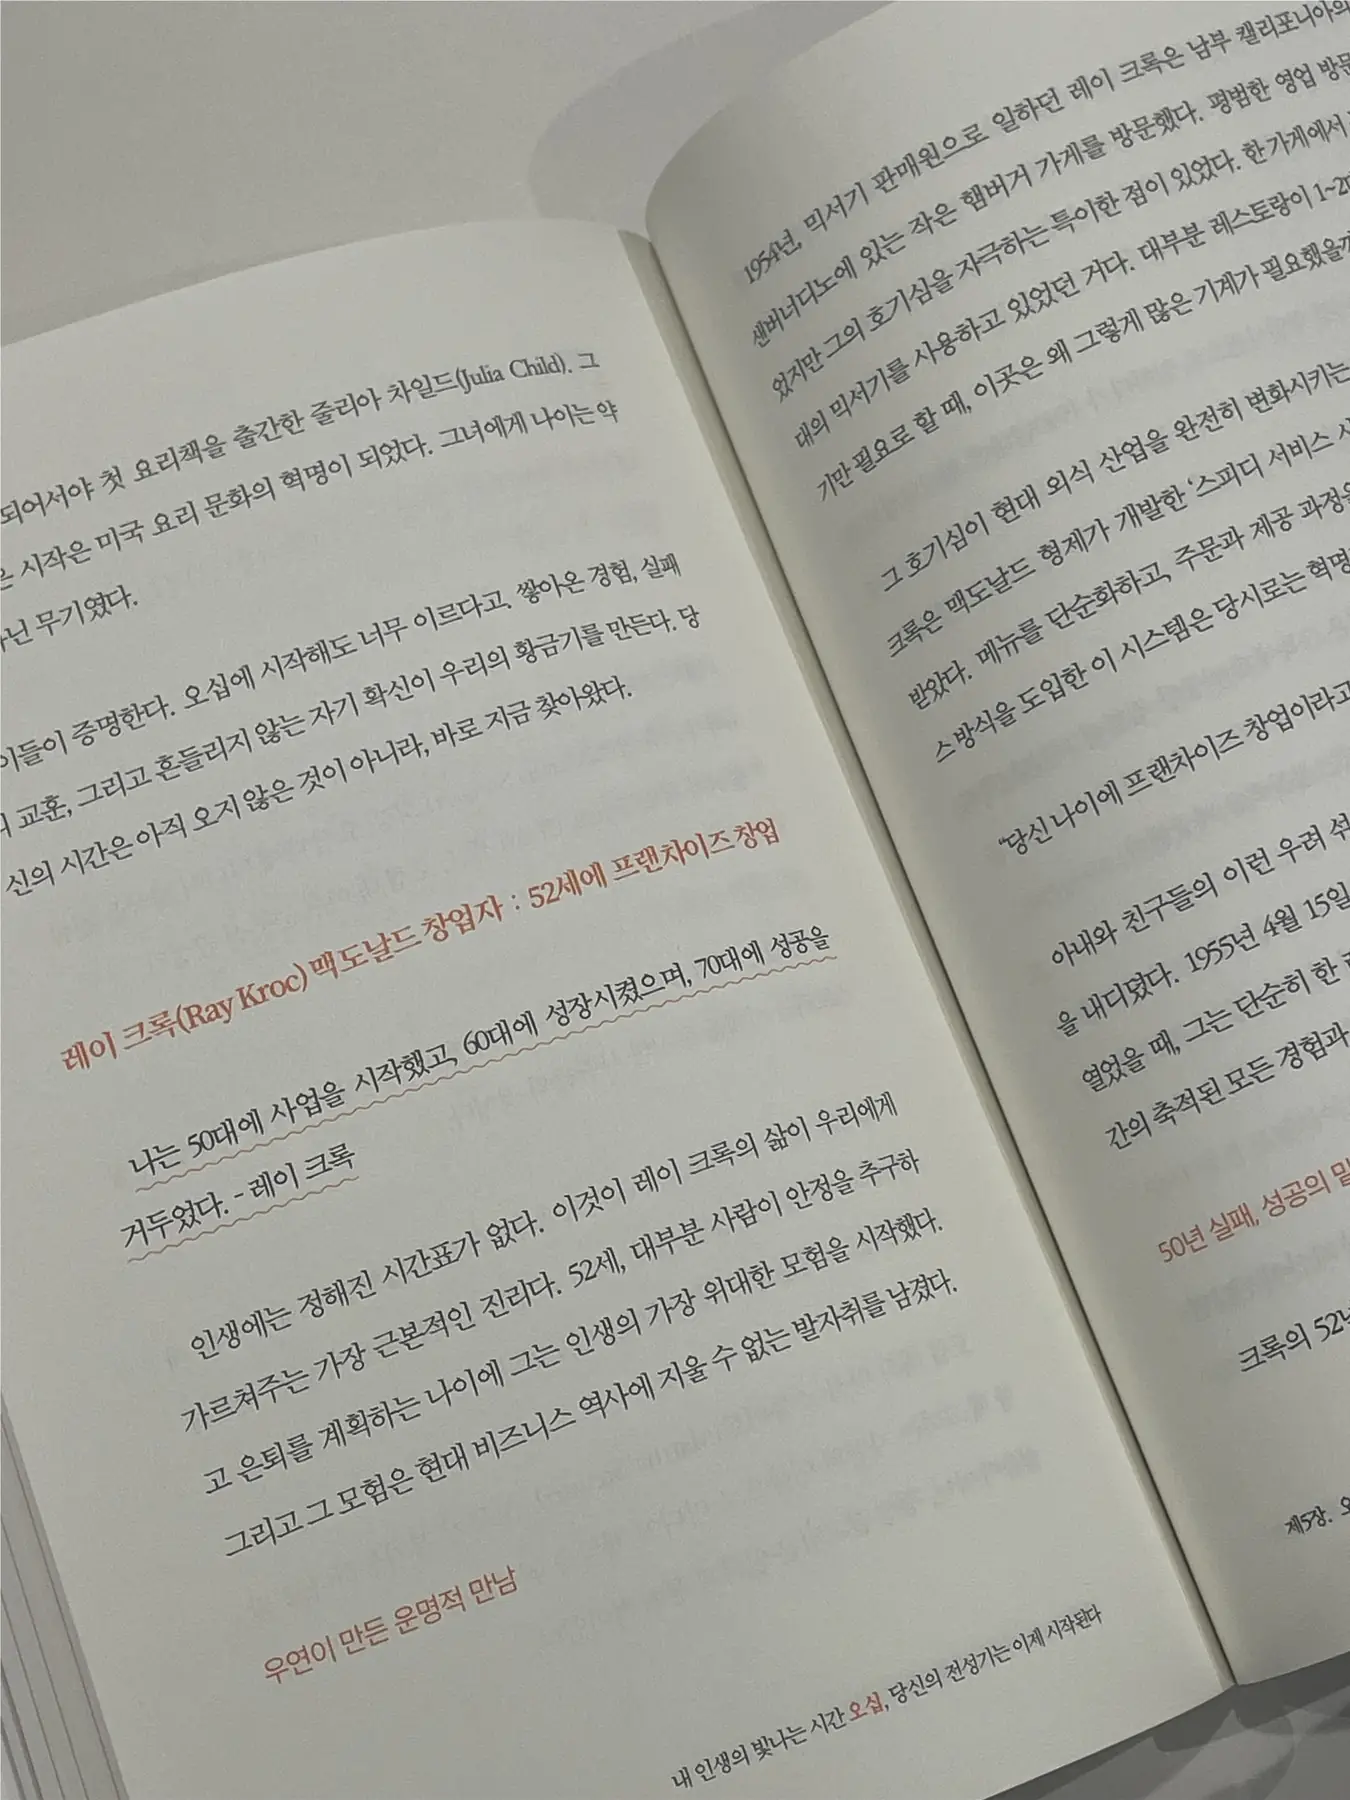 되어서야 첫 요리책을 출간한 줄리아 차일드(Julia Child). 그
시작은 미국 요리 문화의 혁명이 되었다. 그녀에게 나이는 약
무기였다.
이들이 증명한다. 오십에 시작해도 너무 이르다고. 쌓아온 경험, 실패
교훈, 그리고 흔들리지 않는 자기 확신이 우리의 황금기를 만든다. 당
신의 시간은 아직 오지 않은 것이 아니라, 바로 지금 찾아왔다.
레이 크록(Ray Kroc) 맥도날드 창업자 : 52세에 프랜차이즈 창업
나는 50대에 사업을 시작했고, 60대에 성장시켰으며, 70대에 성공을
거두었다. - 레이 크록
인생에는 정해진 시간표가 없다. 이것이 레이 크록의 삶이 우리에게
가르쳐주는 가장 근본적인 진리다. 52세, 대부분 사람이 안정을 추구하
고 은퇴를 계획하는 나이에 그는 인생의 가장 위대한 모험을 시작했다.
그리고 그 모험은 현대 비즈니스 역사에 지울 수 없는 발자취를 남겼다.
우연이 만든 운명적 만남
내 인생의 빛나는 시간 오십, 당신의 전성기는 이제 시작된다
1954년, 믹서기 판매원으로 일하던 레이 크록은 남부 캘리포니아의
샌버너디노에 있는 작은 햄버거 가게를 방문했다. 평범한 영업 방문
었지만 그의 호기심을 자극하는 특이한 점이 있었다. 한 가게에서
대의 믹서기를 사용하고 있었던 거다. 대부분 레스토랑이 1~2대
기만 필요로 할 때, 이곳은 왜 그렇게 많은 기계가 필요했을까
그 호기심이 현대 외식 산업을 완전히 변화시키는
크록은 맥도날드 형제가 개발한 ‘스피디 서비스 시
받았다. 메뉴를 단순화하고, 주문과 제공 과정을
스 방식을 도입한 이 시스템은 당시로는 혁명
“당신 나이에 프랜차이즈 창업이라고
아내와 친구들의 이런 우려 섞
을 내디뎠다. 1955년 4월 15일
열었을 때, 그는 단순히 한
간의 축적된 모든 경험과
50년 실패, 성공의 밑
크록의 52년
제5장. 오